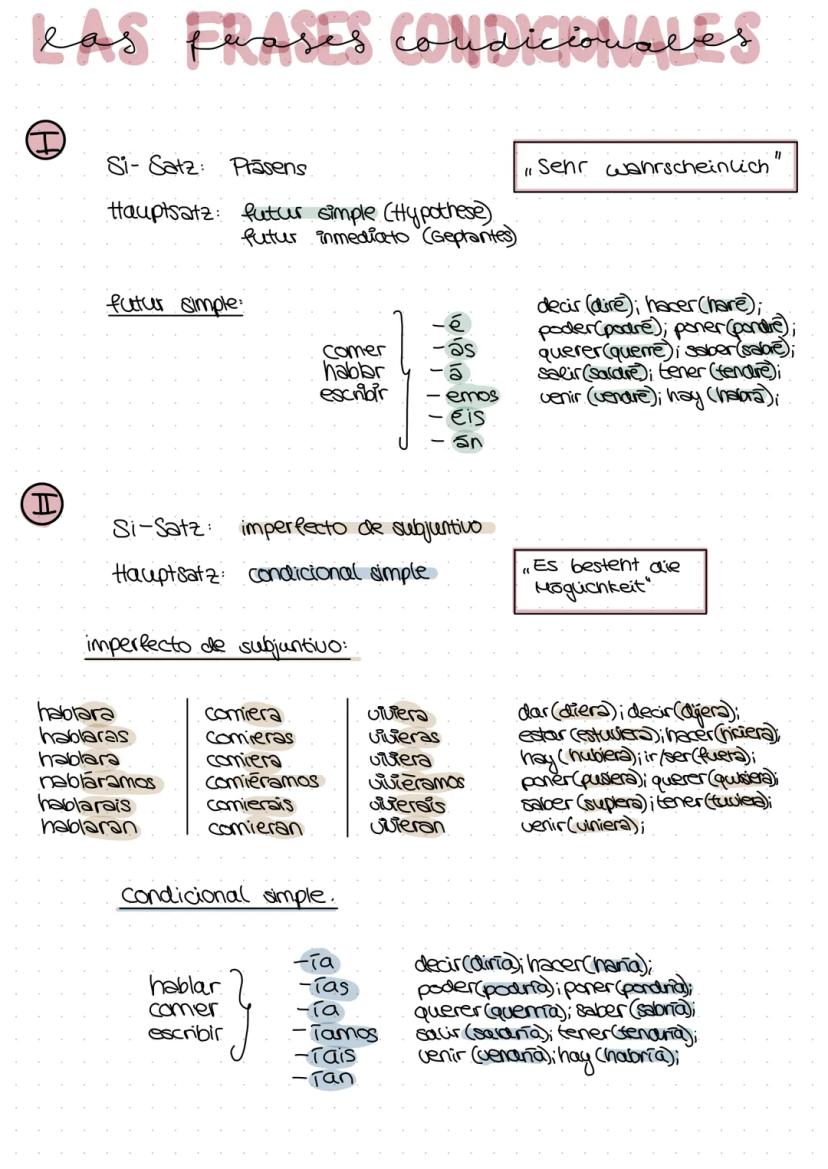 LAS FRASES CONDICIONALES
las frases condicionales
I
Si-Satz: Präsens
„Sehr wahrscheinlich"
Hauptsatz: futur simple (Hypothese)
futur inmediato (Geplantes)
futur simple:
comer
hablar
escribir
-é
-ás
-á
-emos
-éis
-án
decir (diré); hacer (haré);
poder (podré); poner (pondré);
querer (querré); saber (sabré);
salir (saldré); tener (tendré);
venir (vendré); hay (habrá);
II
Si-Satz: imperfecto de subjuntivo
Hauptsatz: condicional simple
„Es besteht die
Möglichkeit"
imperfecto de subjuntivo:
hablara
hablaras
hablara
habláramos
hablarais
hablaran
comiera
comieras
comiera
comiéramos
comierais
comieran
viviera
vivieras
viviera
viviéramos
vivierais
vivieran
dar (diera); decir (dijera);
estar (estuviera); hacer (hiciera);
hay (hubiera); ir/ser (fuera);
poner (pusiera); querer (quisiera);
saber (supiera); tener (tuviera);
venir (viniera);
condicional simple.
hablar
comer
escribir
-ía
-ías
-ía
-íamos
-íais
-ían
decir (diría); hacer (haría);
poder (podría); poner (pondría);
querer (querría); saber (sabría);
salir (saldría); tener (tendría);
venir (vendría); hay (habría);